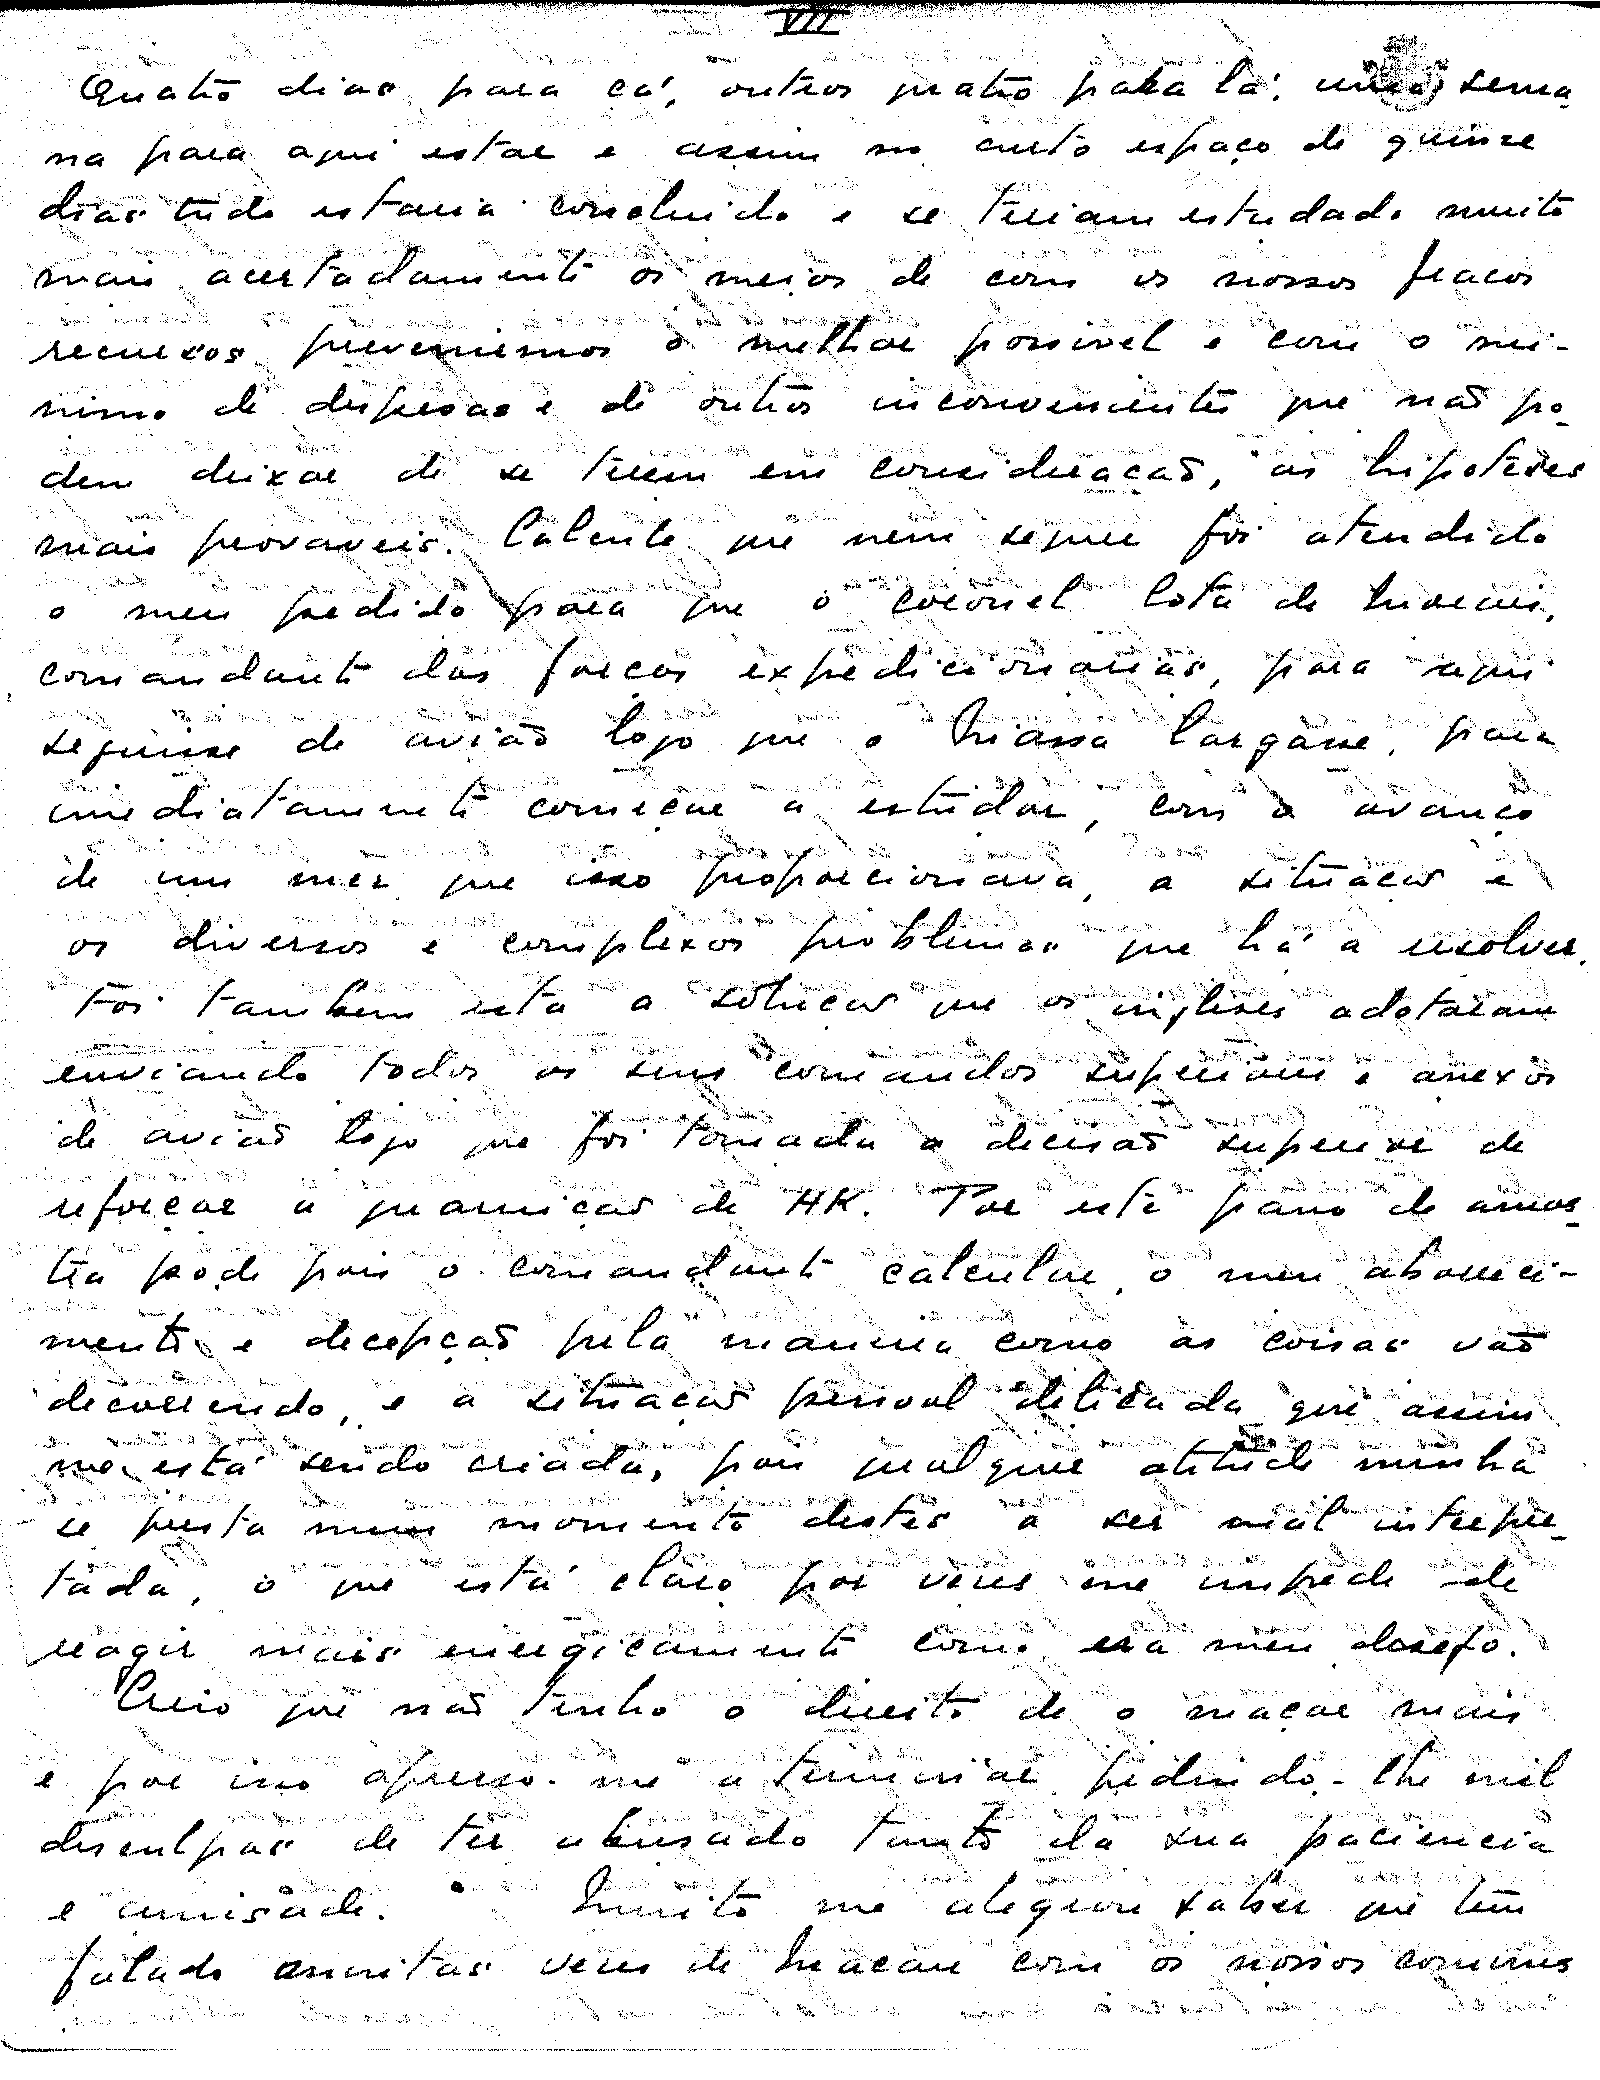 VII
Quatro dias para cá, outros quatro para lá, uma sema
na para aqui estar e assim no curto espaço de quinze
dias tudo estaria concluido e se teriam estudado muito
mais acertadamente os meios de com os nossos fracos
recursos prevenirmos o melhor possivel e com o mi-
nimo de despesas e de outros inconvenientes que não po-
dem deixar de se terem em consideração, as hipoteses
mais provaveis. Calcule que nem sequer foi atendido
o meu pedido para que o coronel Cota de Morais,
comandante das forças expedicionarias, para aqui
seguisse de avião logo que o Niassa largasse, para
imediatamente começar a estudar, com o avanço
de um mês que isso proporcionava, a situação e
os diversos e complexos problemas que há a resolver.
Foi tambem esta a solução que os ingleses adotaram
enviando todos os seus comandos superiores e anexos
de avião logo que foi tomada a decisão suprema de
reforçar a guarnição de HK. Por este pano de amos-
tra pode pois o comandante calcular o meu aborreci-
mento e decepção pela maneira como as coisas vão
decorrendo, e a situação pessoal delicada que assim
me está sendo criada, pois qualquer atitude minha
se presta num momento destes a ser mal interpre-
tada, o que está claro por vezes me impede de
reagir mais energicamente como era meu desejo.
Creio que não tenho o direito de o maçar mais
e por isso apresso-me a terminar pedindo-lhe mil
desculpas de ter abusado tanto da sua paciencia
e amisade. Muito me alegrou saber que tem
falado muitas vezes de Macau com os nossos comuns